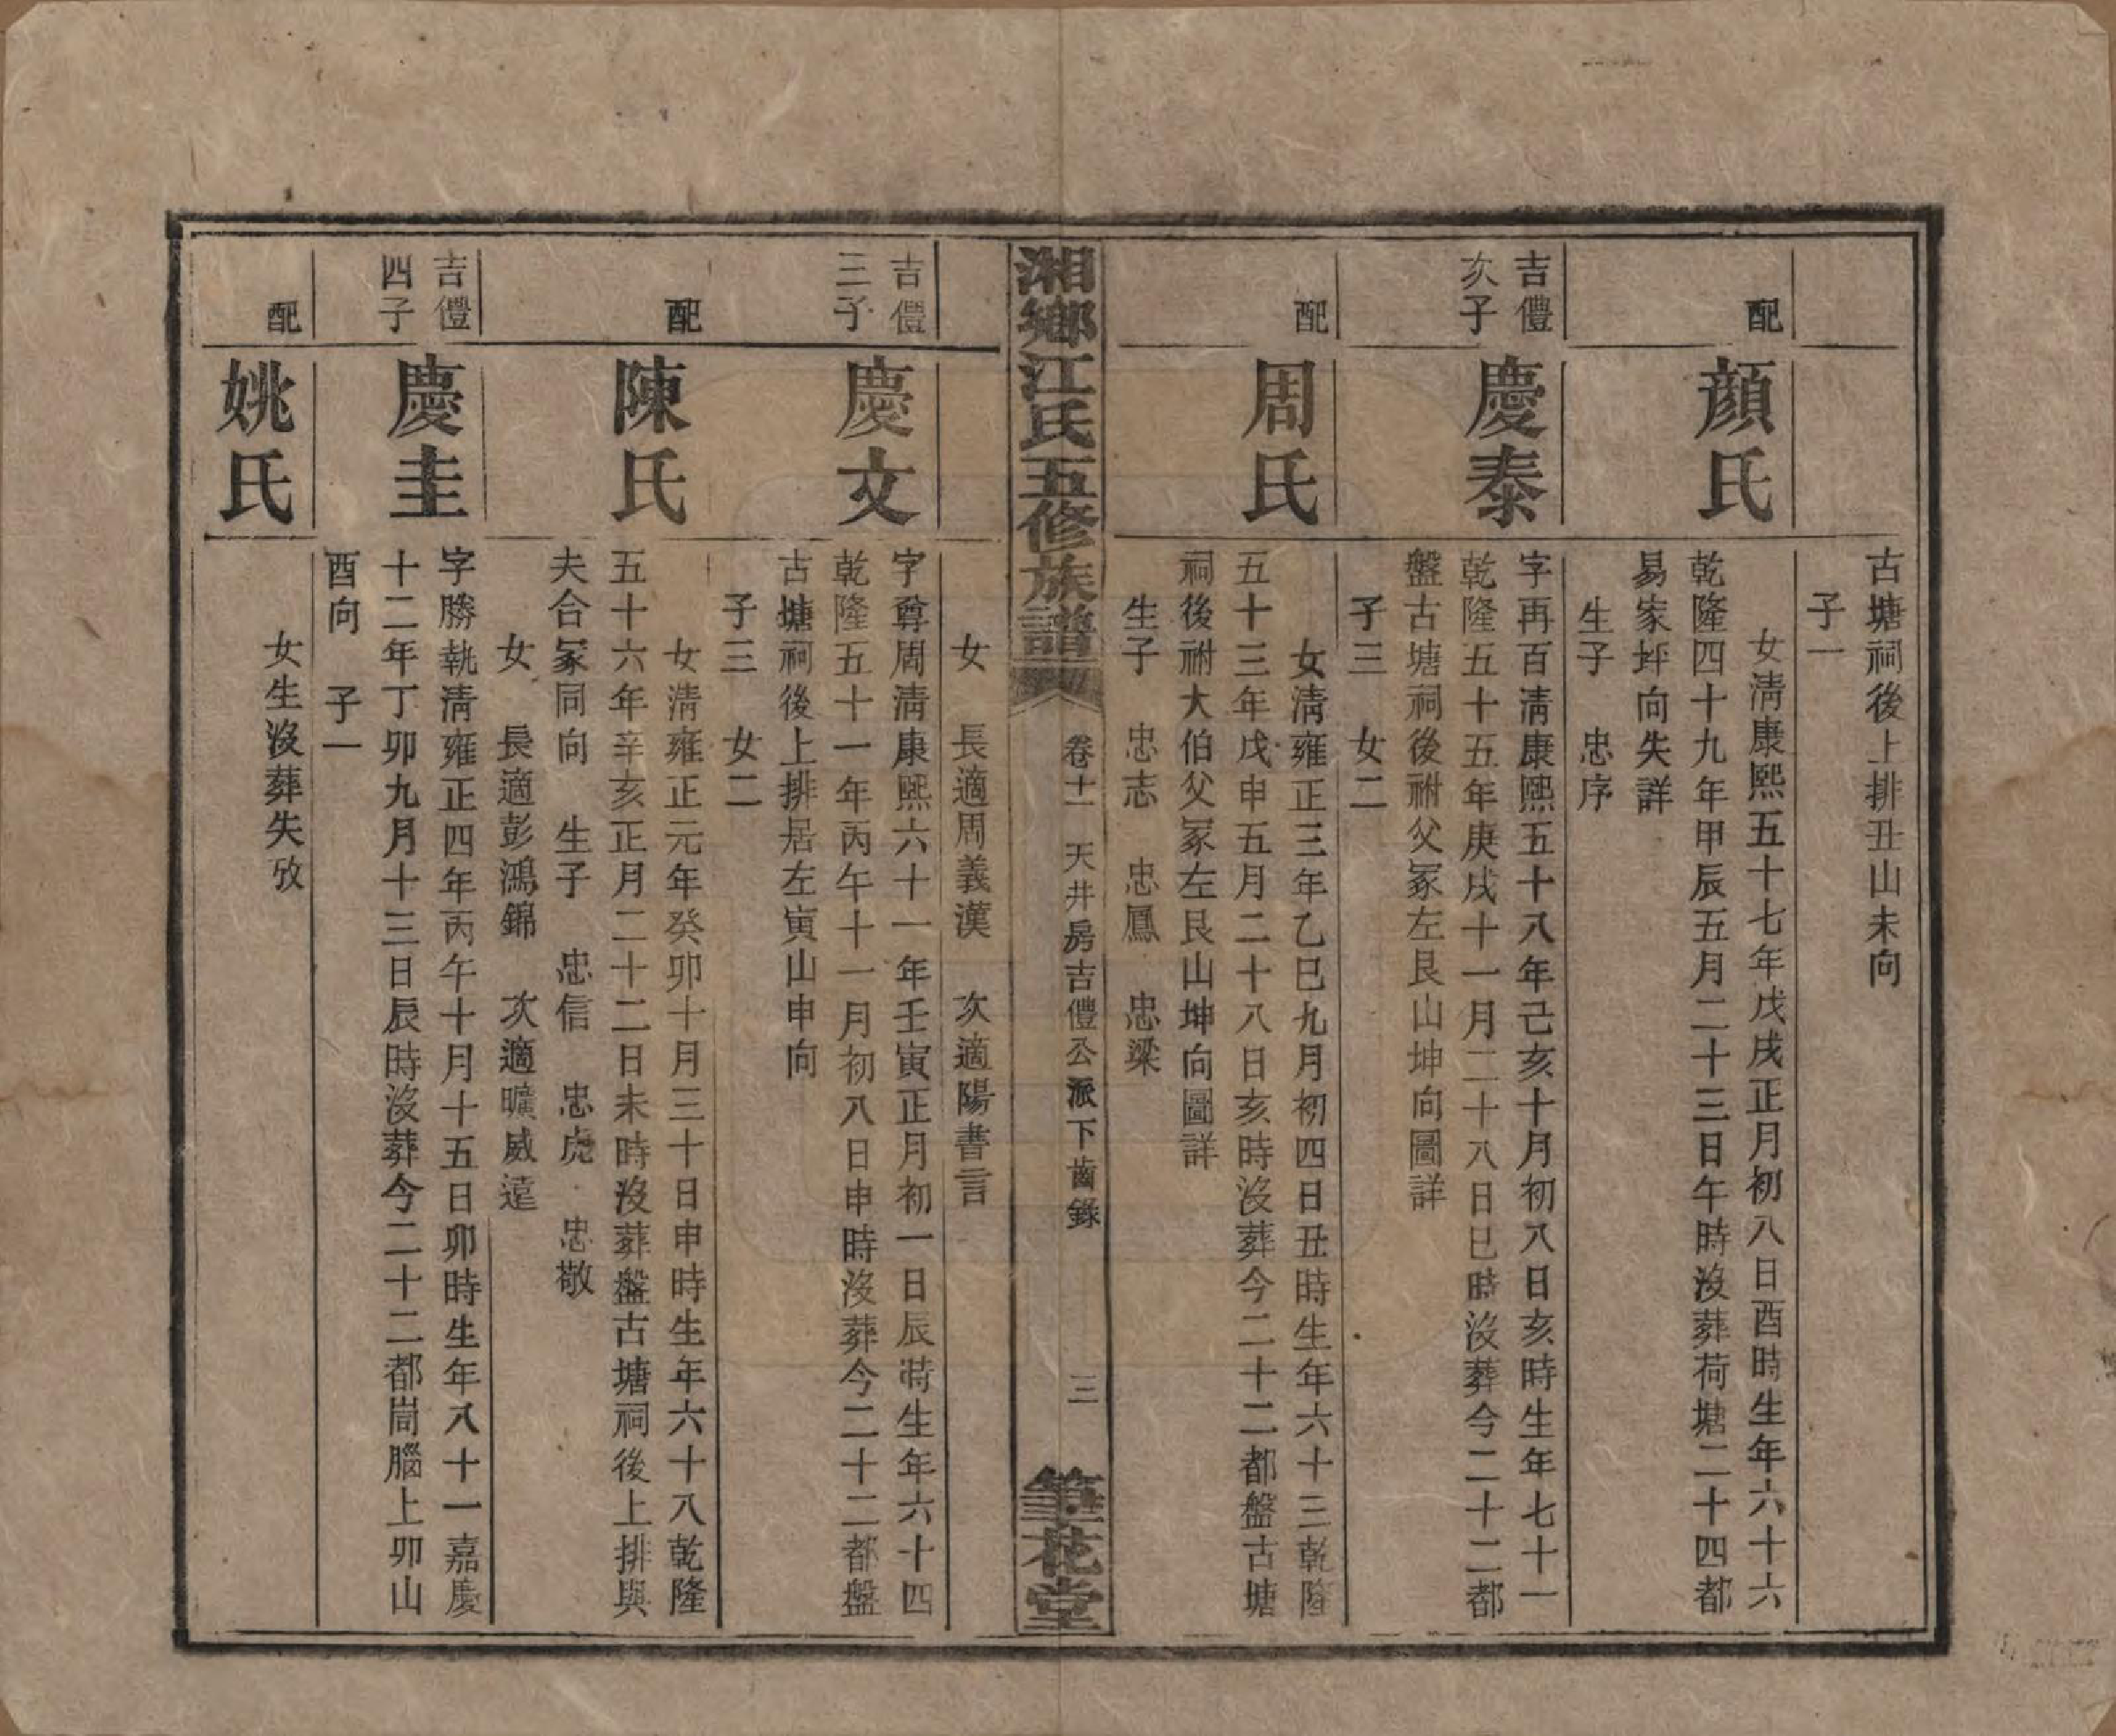 古塘祠後上排丑山未向
子一
配
顏氏
女淸康熙五十七年戊戌正月初八日酉時生年六十六
乾隆四十九年甲辰五月二十三日午時沒葬荷塘二十四都
易家坪向失詳
生子　忠序
吉僼
次子
慶泰
字再百淸康熙五十八年己亥十月初八日亥時生年七十一
乾隆五十五年庚戌十一月二十八日巳時沒葬今二十二都
盤古塘祠後祔父冢左艮山坤向圖詳
子三　女二
配
周氏
女淸雍正三年乙巳九月初四日丑時生年六十三乾隆
五十三年戊申五月二十八日亥時沒葬今二十二都盤古塘
祠後祔大伯父冢左艮山坤向圖詳
生子　忠志　忠鳳　忠梁
湘鄉江氏五修族譜
卷十一　天井房吉僼公派下齒錄
三
筆花堂
女　長適周義漢　次適陽書言
吉僼
三子
慶文
字尊周淸康熙六十一年壬寅正月初一日辰時生年六十四
乾隆五十一年丙午十一月初八日申時沒葬今二十二都盤
古塘祠後上排居左寅山申向
子三　女二
配
陳氏
女淸雍正元年癸卯十月三十日申時生年六十八乾隆
五十六年辛亥正月二十二日未時沒葬盤古塘祠後上排與
夫合冢同向　生子　忠信　忠虎　忠敬
女　長適彭鴻錦　次適曠威遠
吉僼
四子
慶圭
字勝執淸雍正四年丙午十月十五日卯時生年八十一嘉慶
十二年丁卯九月十三日辰時沒葬今二十二都峝腦上卯山
酉向　子一
配
姚氏
女生沒葬失攷